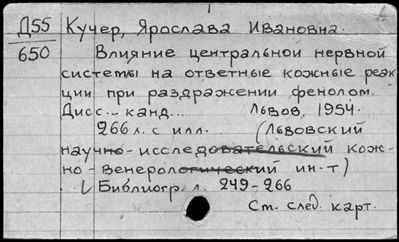 Д55 Кучер, Ярослава Ивановна.
650 Влияние центральной нервной
системы на ответные кожные реак
ции при раздражении фенолом.
Дисс... канд... Львов, 1954.
266 л. с илл. (Львовский
научно-исследовательский кож-
но-венерологический ин-т)
Библиогр. л. 249-266
См. след. карт.